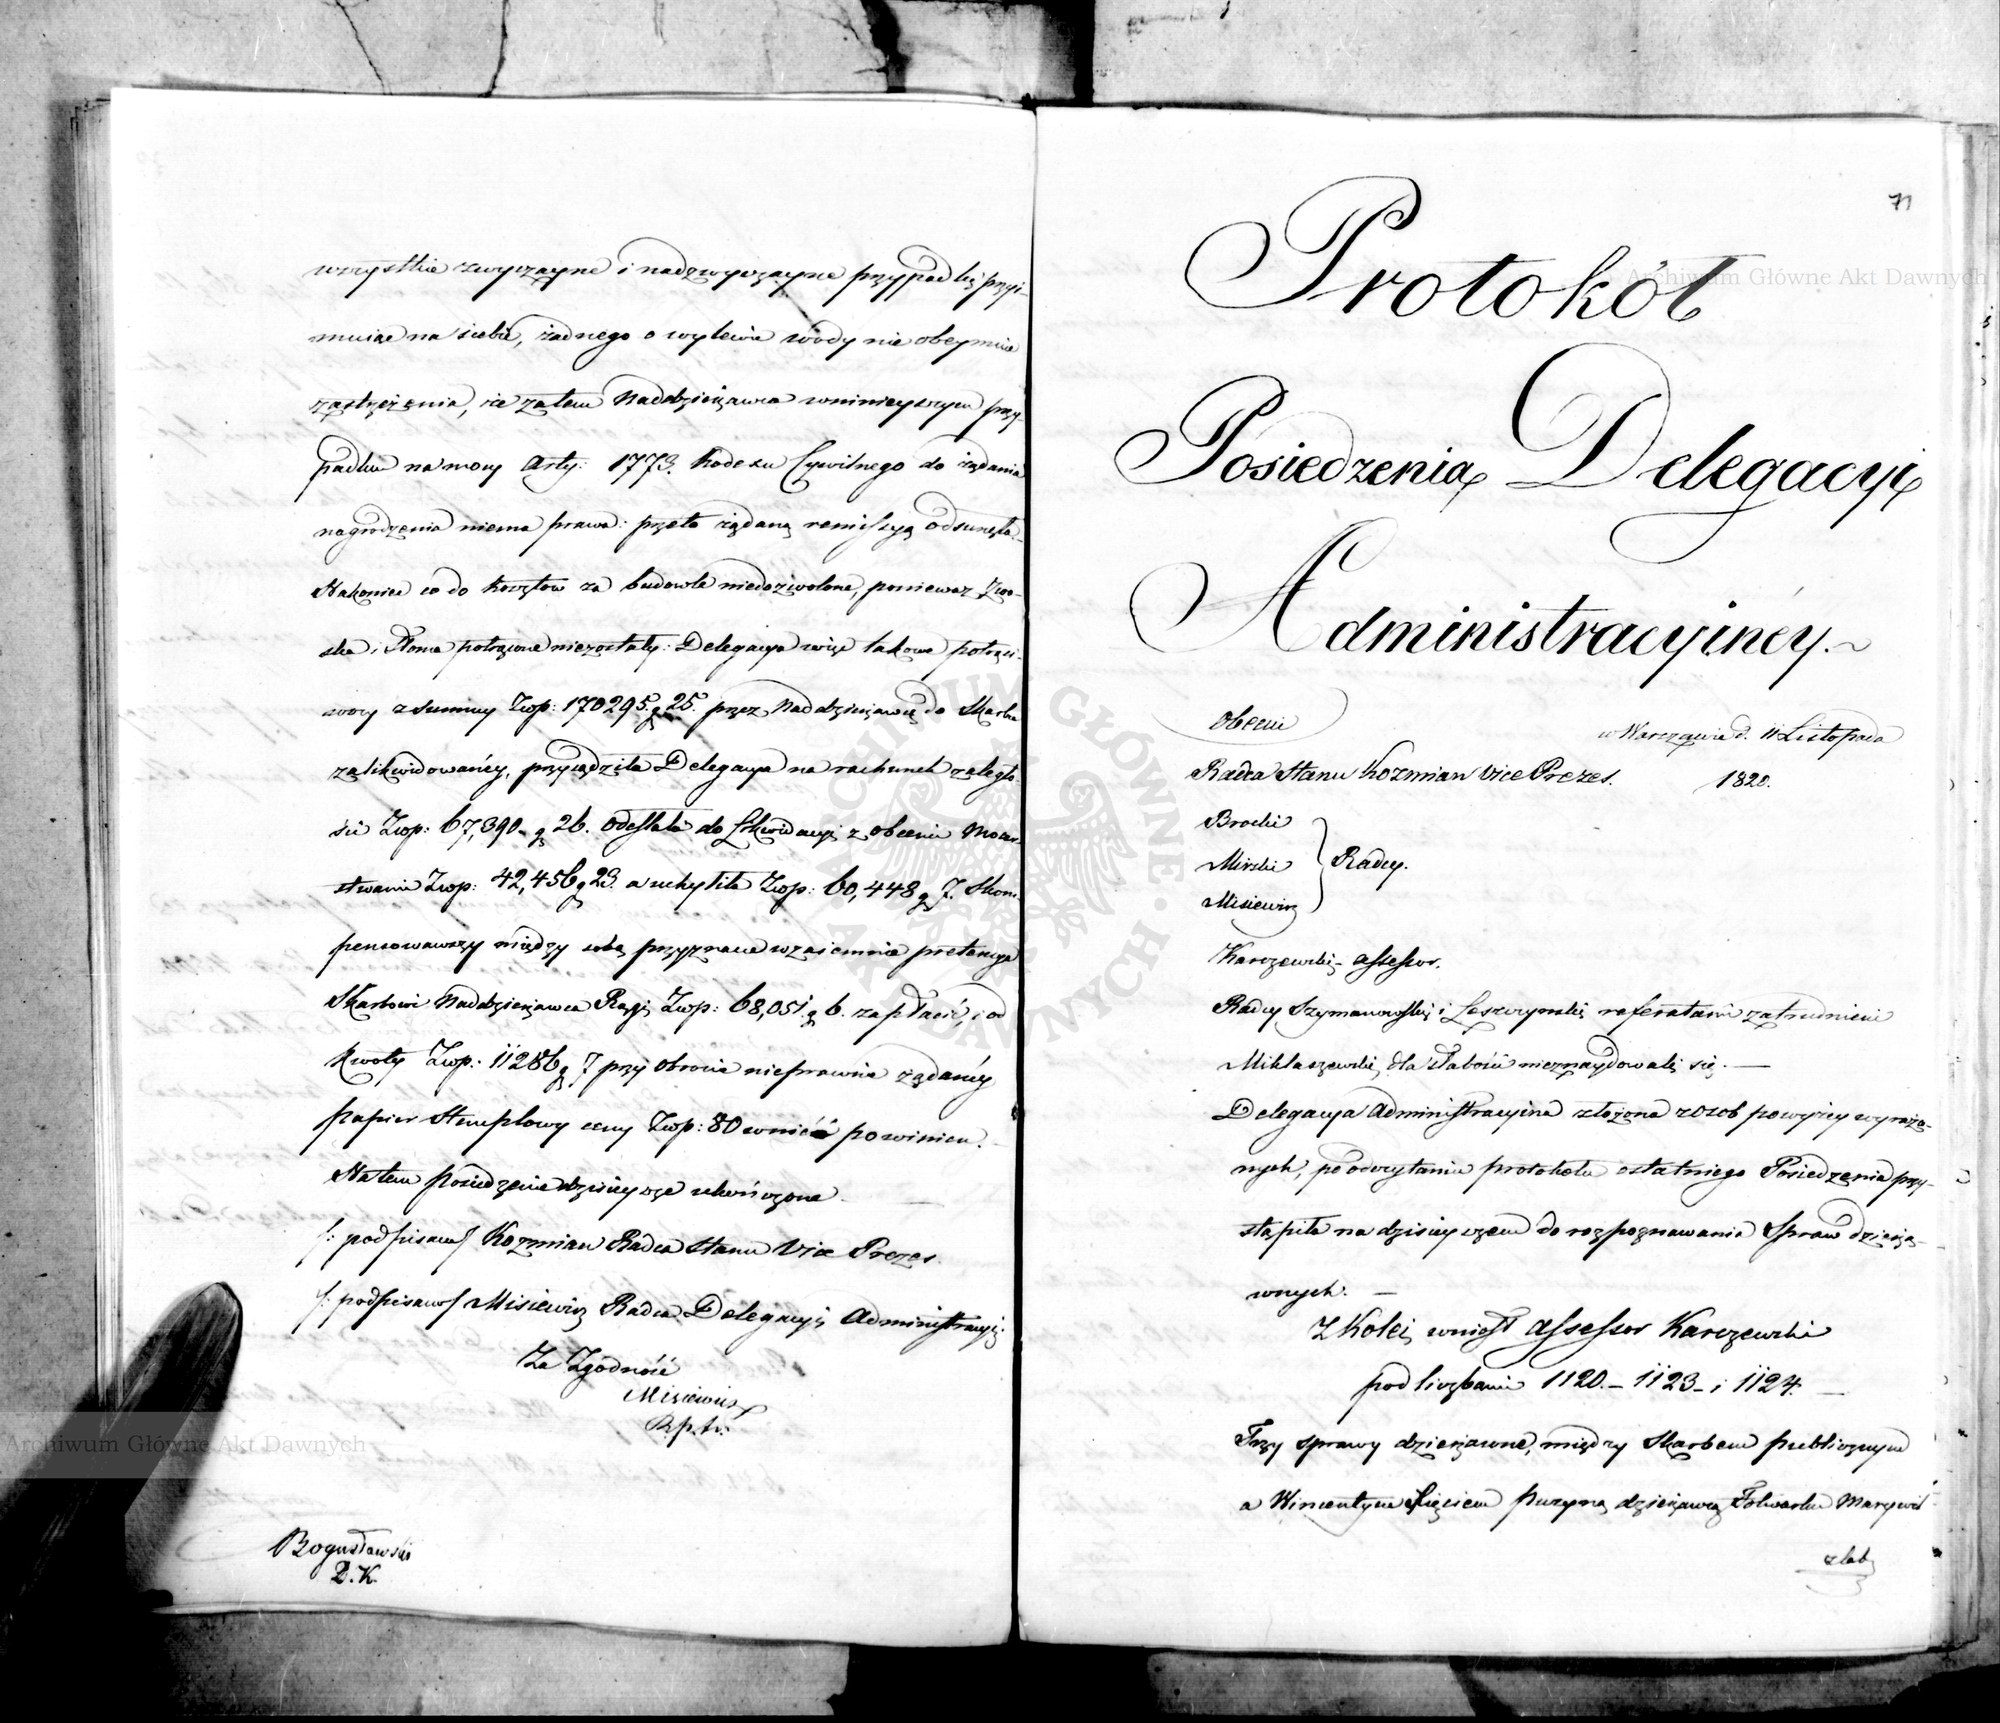 wszystkie zwyczayne i nadzwyczayne przypadki przyi-
muiąc na siebie, żadnego o wylewie wody nie obeymuie
zastrzeżenia, że zatem Naddzierżawca w ninieyszym przy-
padku na mocy Arty: 1773. Kodexu Cywilnego do żądania
nagrodzenia niema prawa: przeto żądaną remissyą odsunęła.
Nakoniec co do kosztów za budowle niedozwolone, ponieważ
potrącone niezostały: Delegacya więc takowe
z summy Złp: 170295. g 25. przez Naddzierżawcę do Skarbu
zalikwidowanéy, przysądziła Delegacya na rachunek zaległo-
ści Złp: 67,390 g 26. odesłała do Likwidacyi z obcemi Mocar-
stwami Złp: 42,456 g 23. a uchyliła Złp: 60,448 g 7. Skom-
pensowawszy między sobą przyznane wzaiemnie pretensye
Skarbowi Naddzierżawca Złp: 68,051. g 6. zapłacić, i od
kwoty Złp: 11286 g 7 przy obronie nieprawnie żądanéy
papier stemplowy ceny Złp: 80 wnieść powinien.
Na tem posiedzenie dzisieysze ukończone.
/: podpisano/ Kozmian Radca Stanu Vice Prezes.
/: podpisano/ Misiewicz Radca Delegacyi Administracyi:
Za Zgodność
Misiewicz
Bogusławski
D. K.
71
Protokół
Posiedzenia Delegacyi
Administracyinéy.
Obecni
w Warszawie d. 11 Listopada
1820.
Radca Stanu Kozmian Vice Prezes.
Brocki
Mirski
Radcy.
Misiewicz
Karczewski - Assessor.
Radcy Szymanowski i Leszczynski referatami zatrudnieni
Miklaszewski dla słabości nieznaydowali się. —
Delegacya Administracyina złożona z osob powyżey wyrażo-
nych, po odczytaniu protokołu ostatniego Posiedzenia przy-
stąpiła na dzisieyszem do rozpoznawania Spraw dzierża-
wnych. —
Z Kolei wniosł Assessor Karczewski
pod liczbami 1120. - 1123 - i 1124. —
Trzy sprawy dzierżawne, między Skarbem publicznym
a Wincentym Xięciem Puzyną dzierżawcą Folwarku Marywil
z lat
Archiwum Główne Akt Dawnych
Archiwum Główne Akt Dawnych
ARCHIWUM GŁÓWNE AKT DAWNYCH